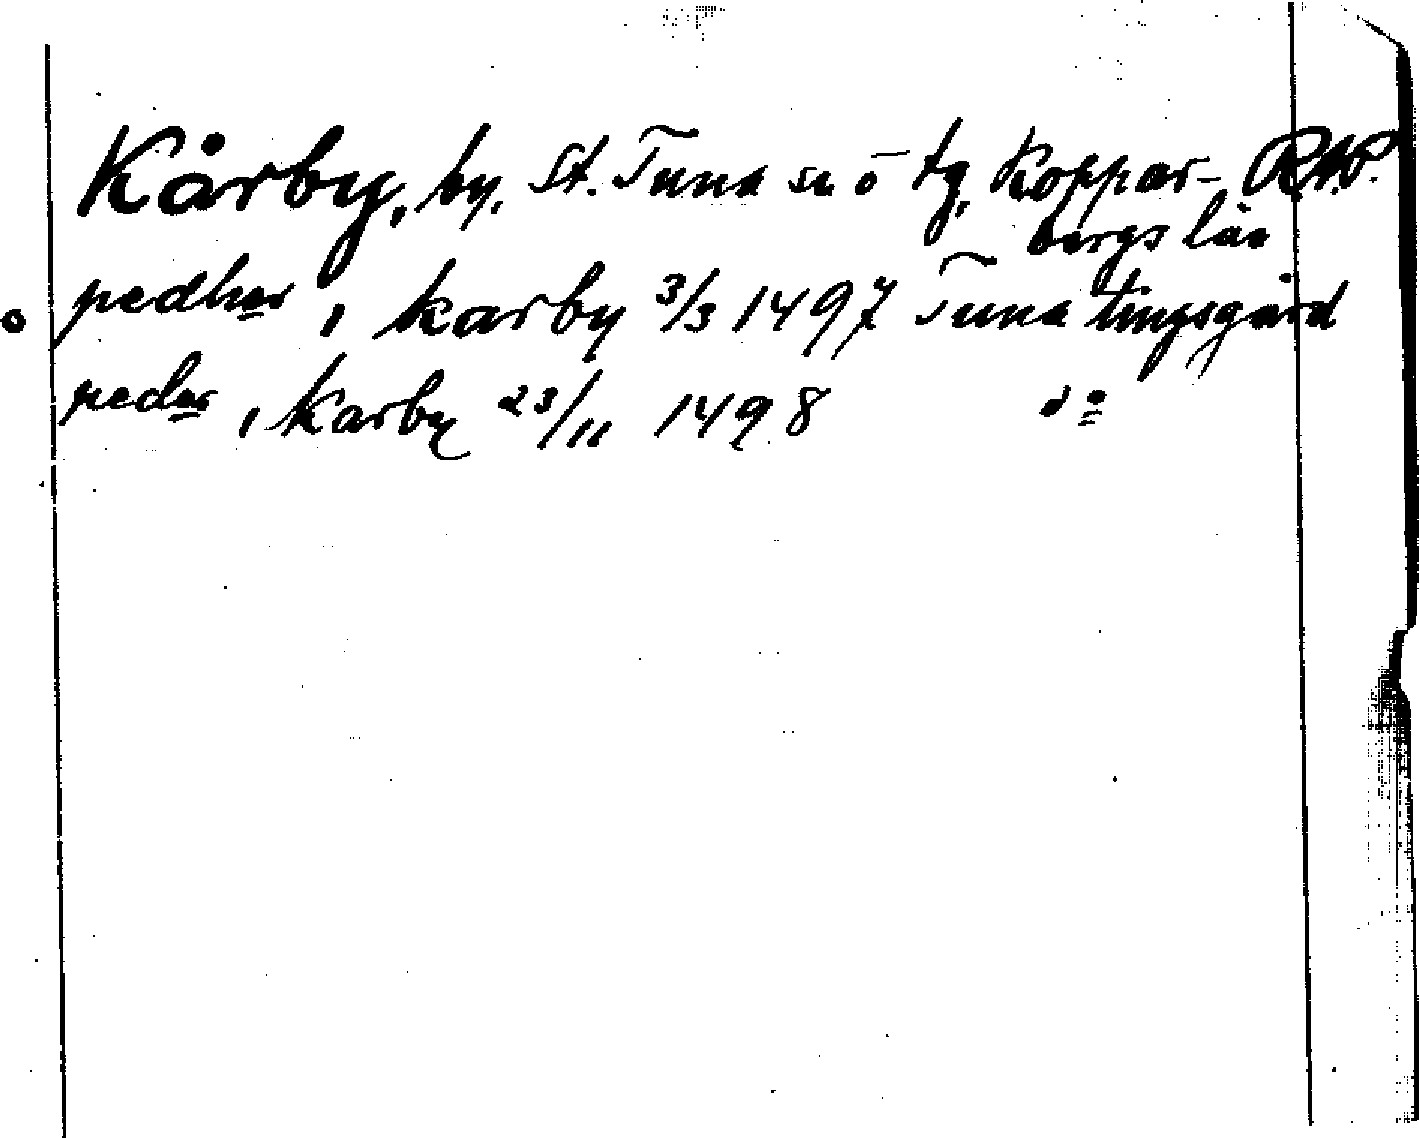 Kårby, by, St. Tuna sn o tg, Koppar- RAP.
bergs län
pedher i karby 3/3 1497 Tuna tingsgård
peder i karby 23/11 1498 do